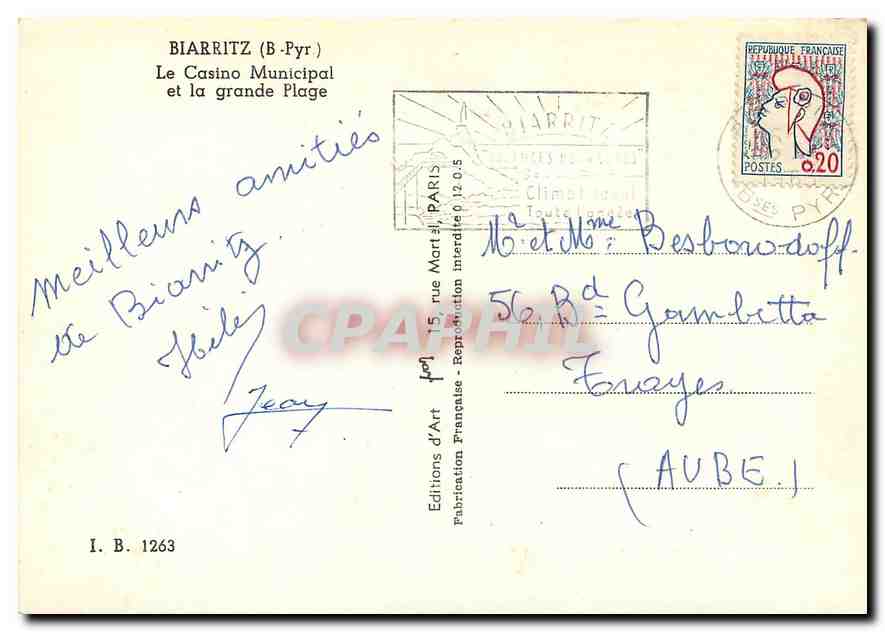 BIARRITZ (B-Pyr)
Le Casino Municipal
et la grande Plage
meilleurs amitiés
de Biarritz.
Jean
I. B. 1263
Editions d'Art 15, rue Martel, PARIS
Fabrication Française - Reproduction interdite 0 12 0.5
BIARRITZ
Climat idéal
Toute l'année
REPUBLIQUE FRANÇAISE
POSTES
0,20
Bses PYR
Mr et Mme Besborodoff
56, Bd Gambetta
Troyes
(AUBE)
CPAPHIL